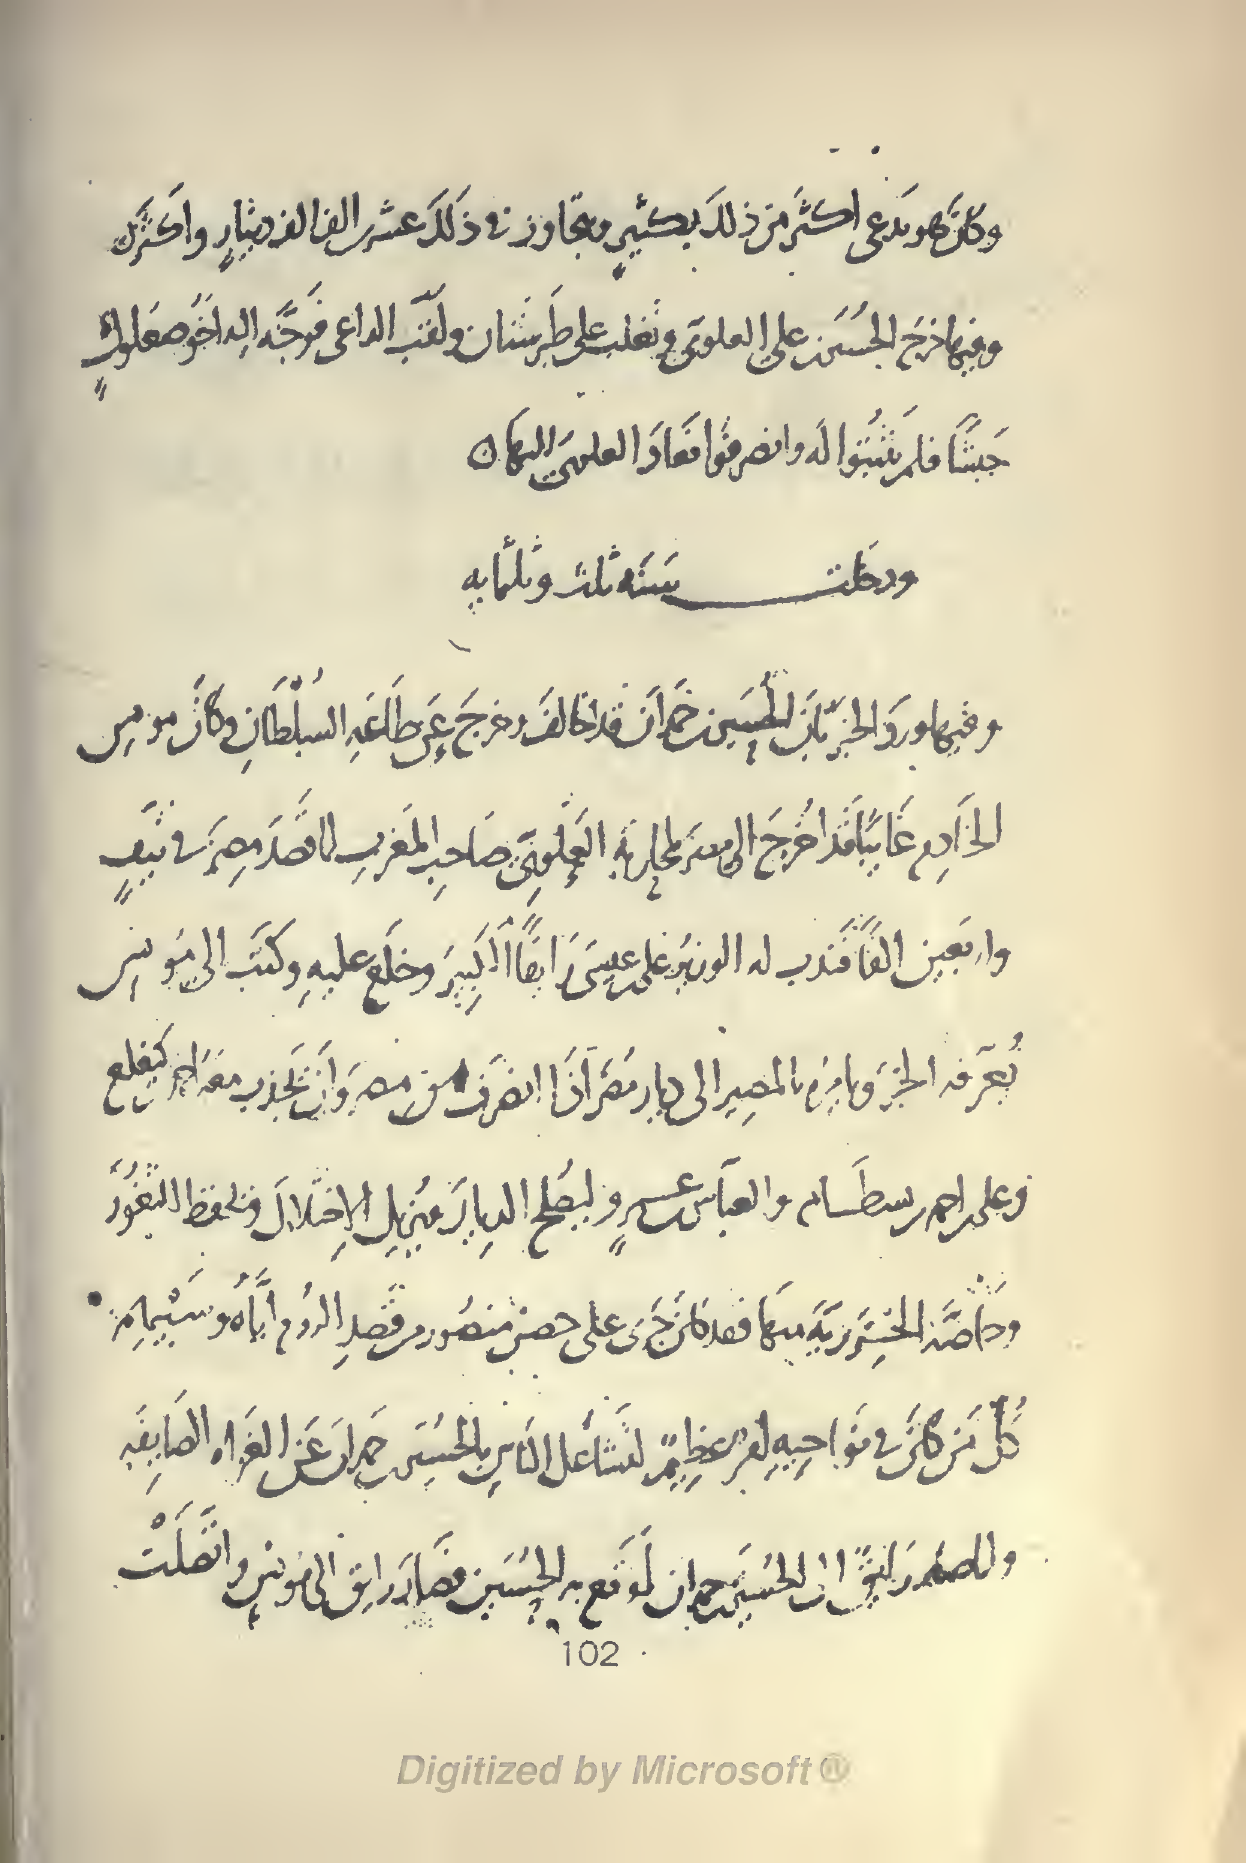 وكان هو يدعى اكثر من ذلك بكثير ويتجاوز فى ذلك عشرين الف الف دينار واكثر
وفيها خرج الحسن بن على العلوى وتغلب على طبرستان ولقب الداعى فوجه اليه اخو صعلوك
جيشًا فلم يثبتوا له وانصرفوا فعاد العلوى اليها ه
ودخلت سنه ثلث وثلثمايه
وفيها ورد الخبر بان الحسين بن حمدان قد خالف وخرج عن طاعه السلطان وكان مونس
الخادم غائبًا قد اخرج الى مصر لمحاربة العلوى صاحب المغرب لما قصد مصر فى نيف
واربعين الفًا فندب له الوزير على بن عيسى رايقًا الكبير وخلع عليه وكتب الى مونس
يعرفه الخبر ويامره بالمصير الى ديار مضر اذا انصرف من مصر وان يجذب معه احمد بن كيغلغ
وعلى بن احمد بن بسطام والعباس بن عمرو ليصلح الديار ويزيل الاختلال ويحفظ الثغور
وخاصة الجزرية منها فقد كان جرى على حصن منصور من قصد الروم اياه وسبيهم من
كل من كان فى نواحيه امر عظيم لتشاغل الناس بالحسين بن حمدان عن الغزاه الصايفه
ولما صار رايق الى الحسين بن حمدان اوقع به الحسين فصار رايق الى مونس واتصلت
102
Digitized by Microsoft ®